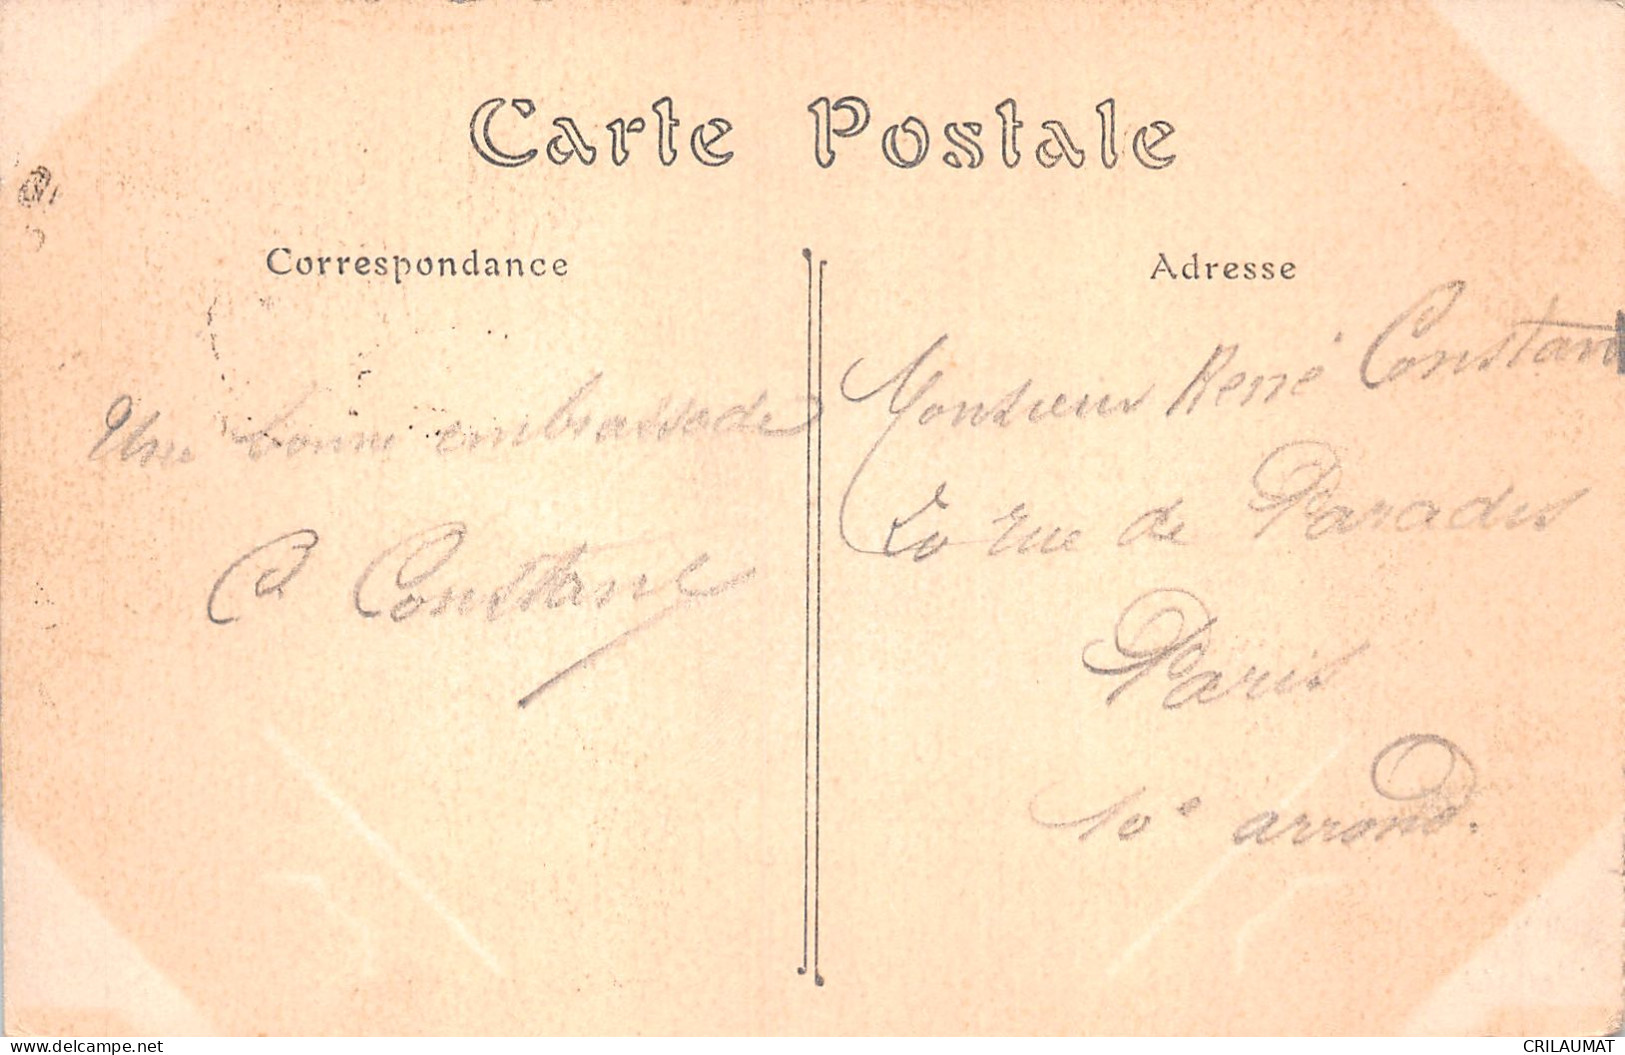 Carte Postale
Correspondance
Une bonne embrassade
C Constant
Adresse
Monsieur René Constant
rue de Paradis
Paris
10e arrond.
delcampe.net
CRILAUMAT